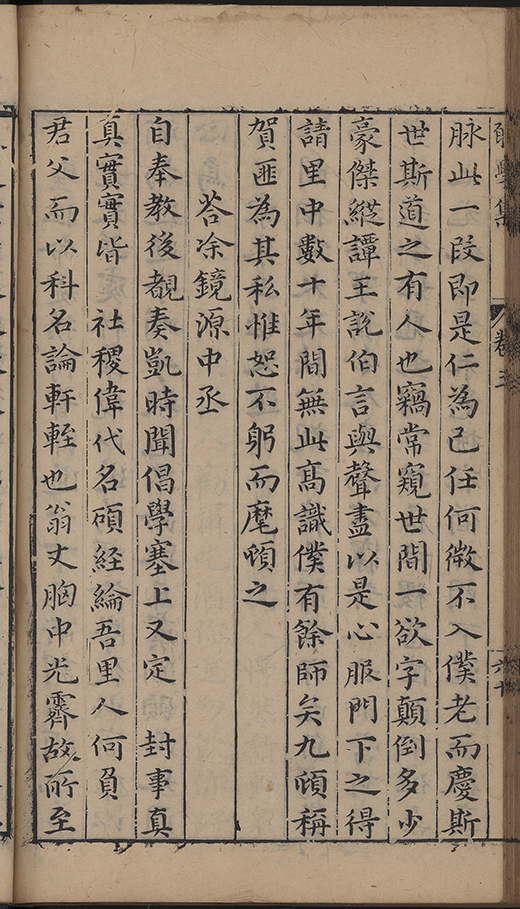 學集 卷三 六十
脉此一段即是仁為己任何微不入僕老而慶斯
世斯道之有人也竊常窺世間一欲字顛倒多少
豪傑縱譚王說伯言與聲盡以是心服門下之得
請里中數十年間無此高識僕有餘師矣九頓稱
賀匪為其私惟恕不躬而麾頓之
荅凃鏡源中丞
自奉教後覩奏凱時聞倡學塞上又定 封事真
真實實皆 社稷偉代名碩経綸吾里人何負
君父而以科名論軒輊也翁丈胸中光霽故所至